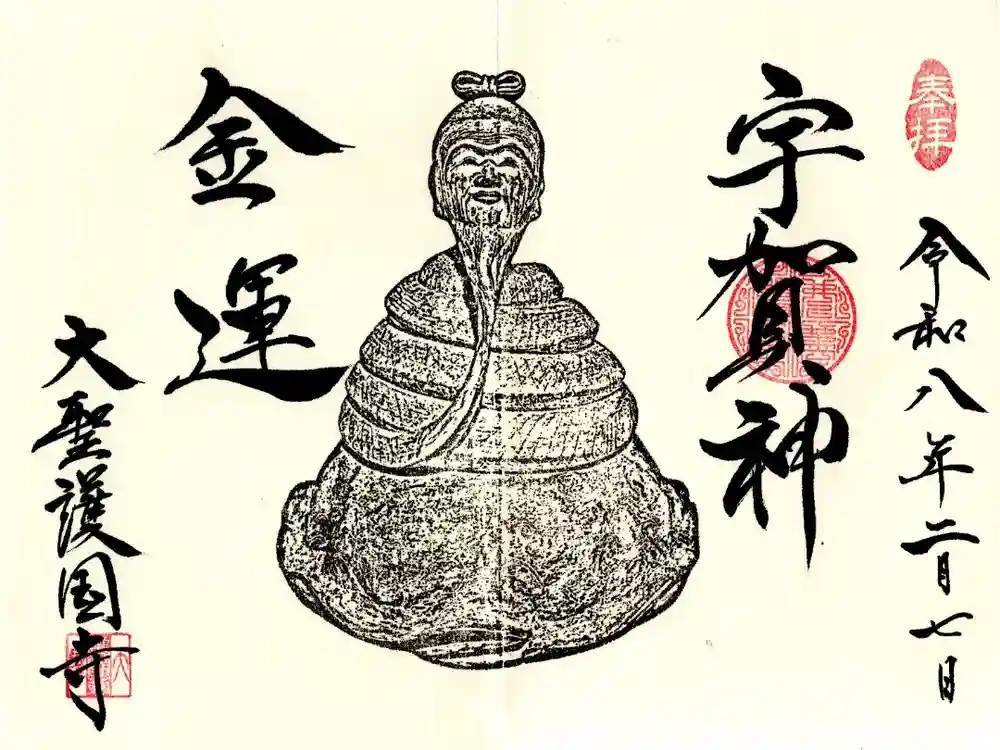 奉拝
令和八年二月七日
宇賀神
金運
大聖護国寺